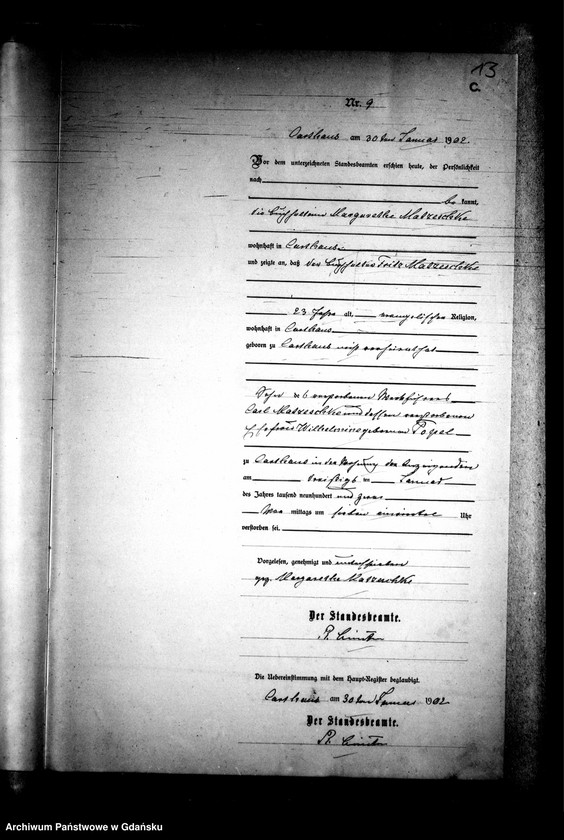 13
C.
Nr. 9
Carthaus am 30ten Januar 1902.
Vor dem unterzeichneten Standesbeamten erschien heute, der Persönlichkeit
nach
be kannt,
die Margarethe Matzeschke
wohnhaft in Carthaus
und zeigte an, daß der Fritz Matzeschke
23 Jahre alt, evangelischer Religion,
wohnhaft in Carthaus
geboren zu Carthaus nicht verheirathet
Sohn des verstorbenen Werkführers
Carl Matzeschke und dessen verstorbenen
Ehefrau Wilhelmine geborenen
zu Carthaus in der Wohnung der Anzeigenden
am dreißigsten Januar
des Jahres tausend neunhundert und zwei
Vor mittags um sieben einviertel Uhr
verstorben sei.
Vorgelesen, genehmigt und unterschrieben
gez. Margarethe Matzeschke
Der Standesbeamte.
Die Uebereinstimmung mit dem Haupt-Register beglaubigt.
Carthaus am 30ten Januar 1902
Der Standesbeamte.
Archiwum Państwowe w Gdańsku